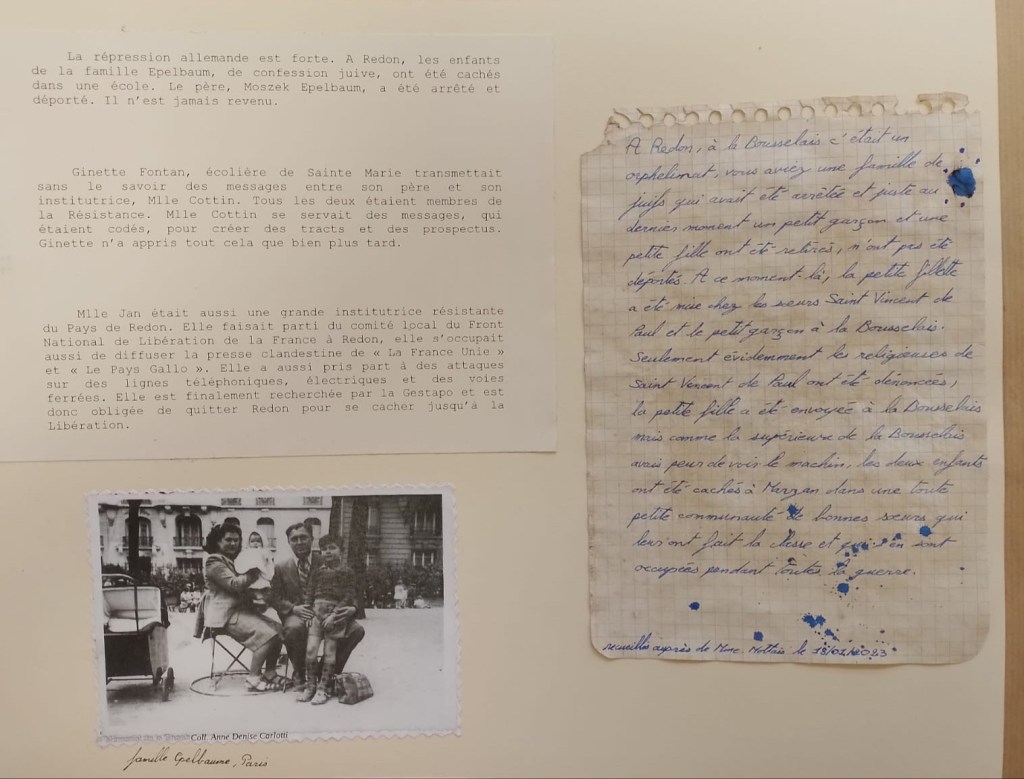 La répression allemande est forte. A Redon, les enfants
de la famille Epelbaum, de confession juive, ont été cachés
dans une école. Le père, Moszek Epelbaum, a été arrêté et
déporté. Il n'est jamais revenu.
Ginette Fontan, écolière de Sainte Marie transmettait
sans le savoir des messages entre son père et son
institutrice, Mlle Cottin. Tous les deux étaient membres de
la Résistance. Mlle Cottin se servait des messages, qui
étaient codés, pour créer des tracts et des prospectus.
Ginette n'a appris tout cela que bien plus tard.
Mlle Jan était aussi une grande institutrice résistante
du Pays de Redon. Elle faisait parti du comité local du Front
National de Libération de la France à Redon, elle s'occupait
aussi de diffuser la presse clandestine de « La France Unie »
et « Le Pays Gallo ». Elle a aussi pris part à des attaques
sur des lignes téléphoniques, électriques et des voies
ferrées. Elle est finalement recherchée par la Gestapo et est
donc obligée de quitter Redon pour se cacher jusqu'à la
Libération.
Coll. Anne Denise Carlotti
famille Epelbaume, Paris
A Redon, à la Bousselais c'était un
orphelinat, vous aviez une famille de
juifs qui avait été arrêtée et juste au
dernier moment un petit garçon et une
petite fille ont été retirés, n'ont pas été
déportés. A ce moment-là, la petite fillette
a été mise chez les sœurs Saint Vincent de
Paul et le petit garçon à la Bousselais.
Seulement évidemment les religieuses de
Saint Vincent de Paul ont été dénoncées,
la petite fille a été envoyée à la Bousselais
mais comme la supérieure de la Bousselais
avais peur de voir le machin, les deux enfants
ont été cachés à Marzan dans une toute
petite communauté de bonnes sœurs qui
leurs ont fait la classe et qui s'en sont
occupées pendant toutes la guerre.
recueillis auprès de Mme. le